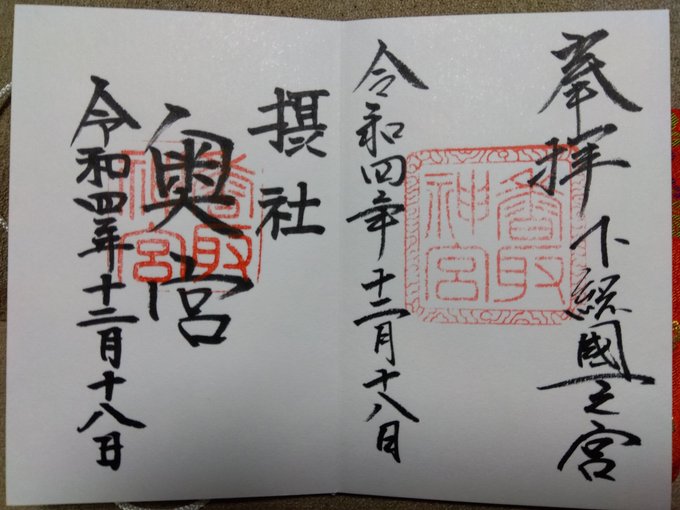 奉拝
下総國一之宮
香取神宮
令和四年十二月十八日
摂社
奥宮
香取神宮
令和四年十二月十八日